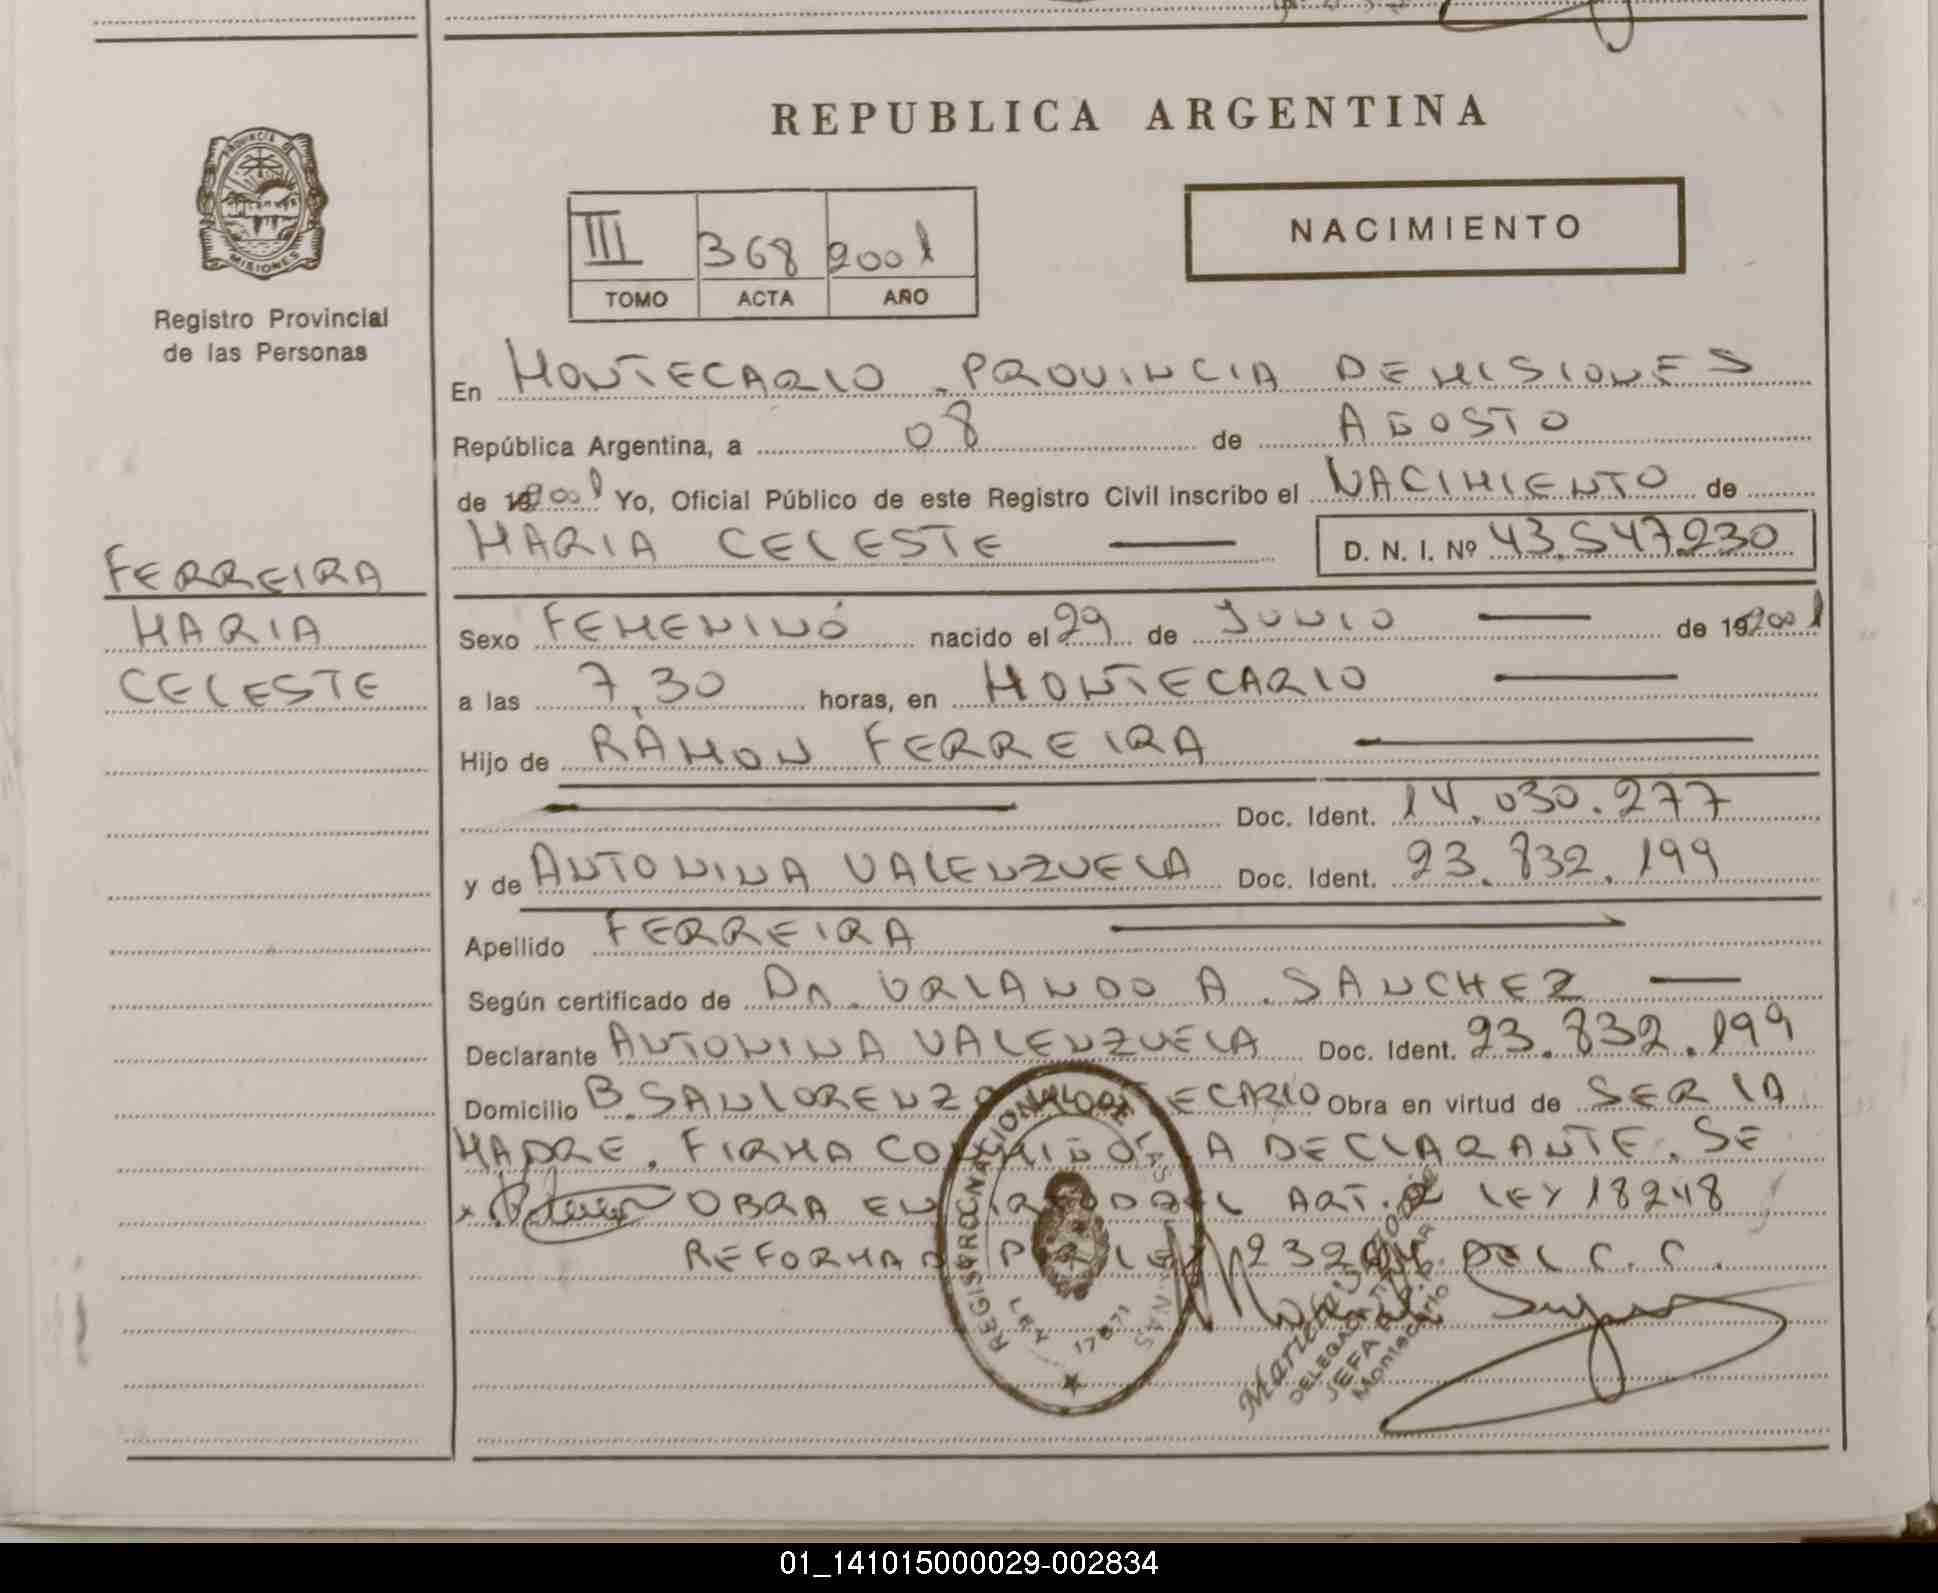 REPUBLICA ARGENTINA
PROVINCIA DE
MISIONES
Registro Provincial
de las Personas
III 368 2001
TOMO ACTA AÑO
NACIMIENTO
En MONTECARLO - PROVINCIA DE MISIONES
República Argentina, a 08 de AGOSTO
de 2001 Yo, Oficial Público de este Registro Civil inscribo el NACIMIENTO de
MARIA CELESTE D. N. I. Nº 43.547.230
FERREIRA
MARIA
CELESTE
Sexo FEMENINO nacido el 29 de JUNIO de 19 2001
a las 7,30 horas, en MONTECARLO
Hijo de RAMON FERREIRA
Doc. Ident. 14.030.277
y de ANTONINA VALENZUELA Doc. Ident. 23.832.199
Apellido FERREIRA
Según certificado de DR. ORLANDO A. SANCHEZ
Declarante ANTONINA VALENZUELA Doc. Ident. 23.832.199
Domicilio B. SAN LORENZO MONTECARLO Obra en virtud de SER LA
MADRE. FIRMA CONMIGO LA DECLARANTE. SE
OBRA EN VIRTUD DEL ART. 2 LEY 18248
REFORMADO POR LEY 23264 DEL C.C.
REGISTRO NACIONAL DE LAS
LEY 17671
DELEGADA TITULAR
JEFA
Montecarlo
01_141015000029-002834